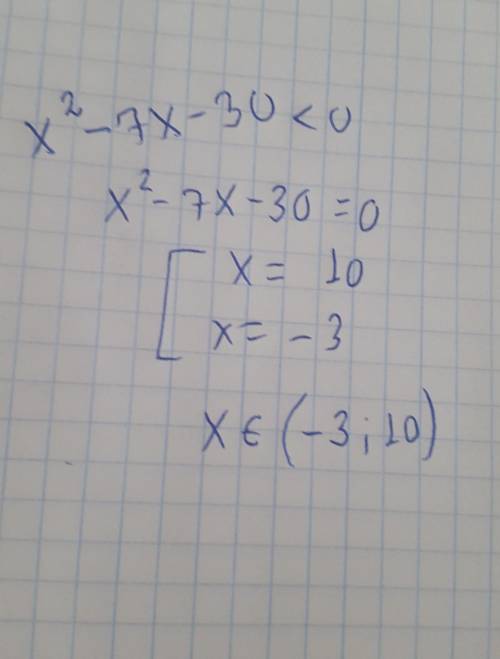 x² - 7x - 30 < 0
x² - 7x - 30 = 0
[ x = 10
x = -3
x ∈ (-3; 10)